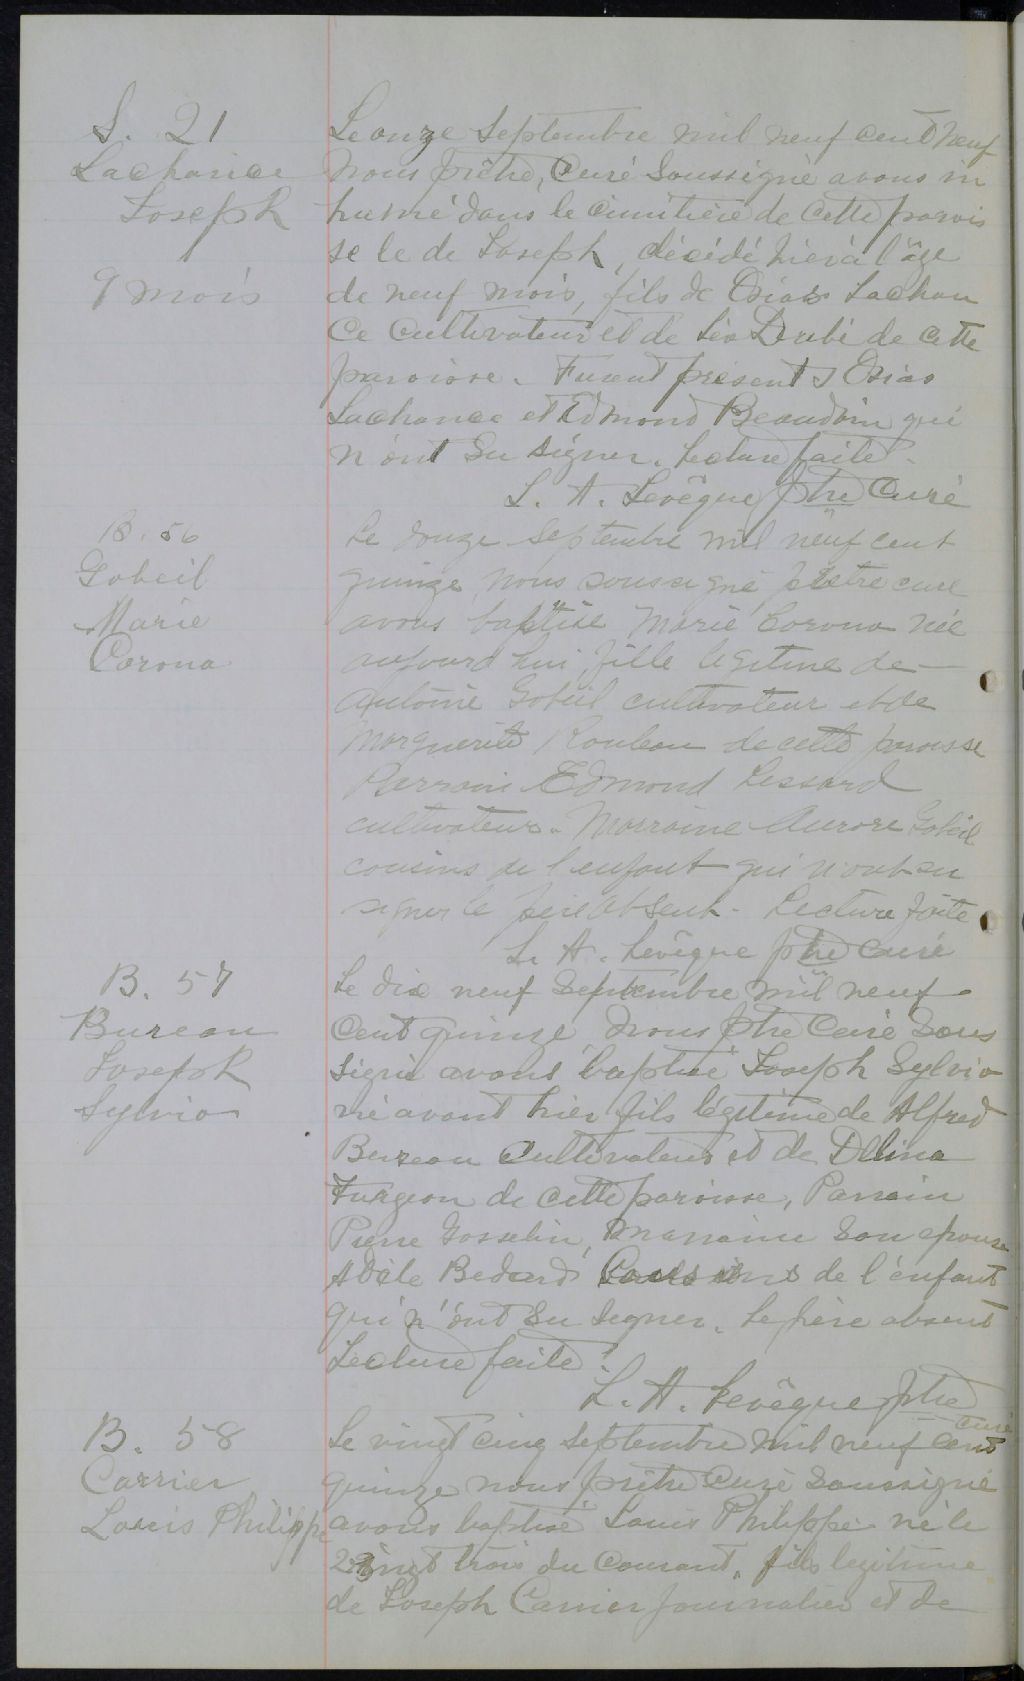 S. 21
Lachance
Joseph
9 mois
Le onze Septembre mil neuf cent neuf
nous prêtre, Curé Soussigné avons in
humé dans le cimitière de cette parois
se le de Joseph, décédé hier à l'âge
de neuf mois, fils de Osias Lachan
ce Cultivateur et de Léa Dubé de cette
paroisse. Furent présents Osias
Lachance et Edmond Beaudoin qui
n'ont su signer. Lecture faite.
L. A. Levêque ptre Curé
B. 56
Gobeil
Marie
Corona
Le douze Septembre mil neuf cent
quinze, nous soussigné, prêtre curé
avons baptisé Marie Corona née
aujourd'hui, fille legitime de
Antoine Gobeil cultivateur et de
Marguerite Rouleau de cette paroisse
Parrain Edmond Lessard
cultivateur. Marraine Aurore Gobeil
cousins de l'enfant qui n'ont su
signer le père absent. Lecture faite
L. A. Levêque ptre Curé
B. 57
Bureau
Joseph
Sylvio
Le dix neuf Septembre mil neuf
cent quinze nous ptre Curé Sous
signé avons baptisé Joseph Sylvio
né avant hier fils légitime de Alfred
Bureau Cultivateur et de Délina
Turgeon de cette paroisse, Parrain
Pierre Gosselin, marraine Son épouse
Adèle Bedard Cousins de l'enfant
qui n'ont su signer. Le père absent
Lecture faite.
L. A. Levêque ptre
curé
B. 58
Carrier
Louis Philippe
Le vingt cinq Septembre mil neuf cent
quinze nous prêtre Curé Soussigné
avons baptisé Louis Philippe né le
vingt trois du courant, fils legitime
de Joseph Carrier journalier et de